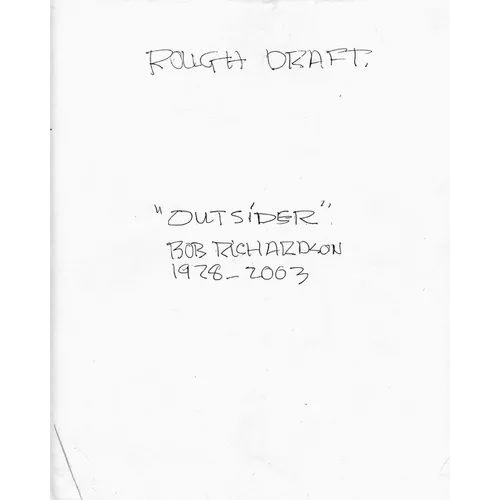 ROUGH DRAFT.
"OUTSIDER".
BOB RICHARDSON
1928-2003